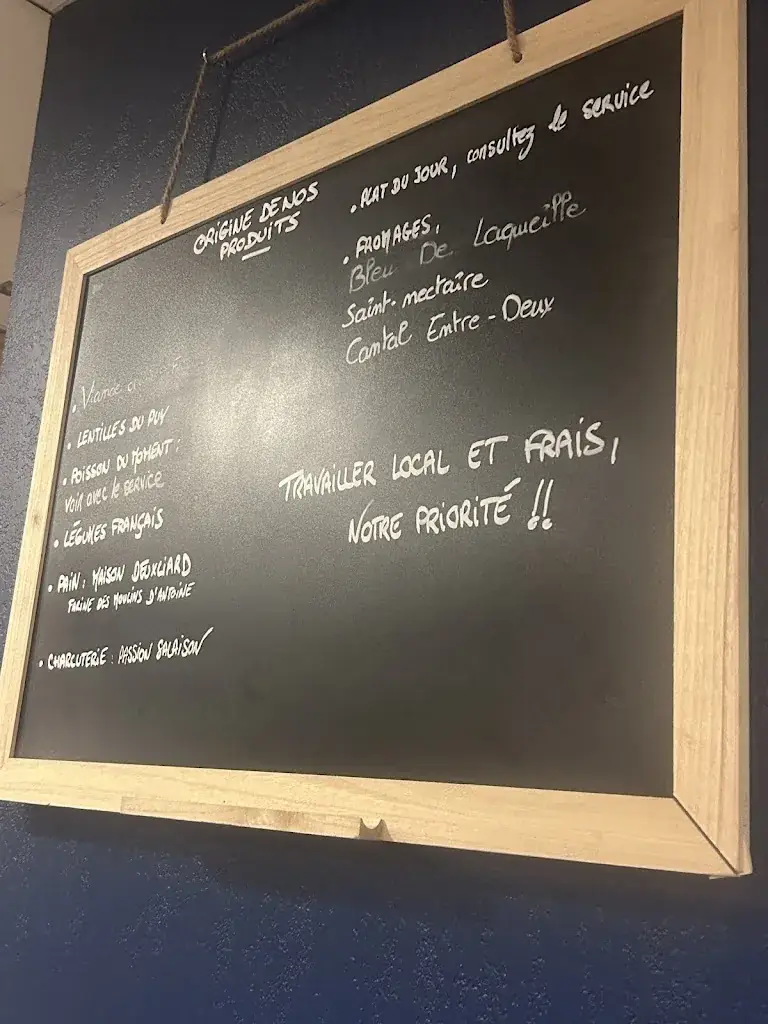 ORIGINE DE NOS
PRODUITS
• Viande
• LENTILLES DU PUY
• POISSON DU MOMENT :
VOIR avec le service
• LÉGUMES FRANÇAIS
• PAIN : MAISON
FARINE DES MOULINS D'ANTOINE
• CHARCUTERIE : PASSION SALAISON
• PLAT DU JOUR, consultez le service
• FROMAGES,
Bleu De Laqueille
Saint-nectaire
Cantal Entre-Deux
TRAVAILLER LOCAL ET FRAIS,
NOTRE PRIORITÉ !!